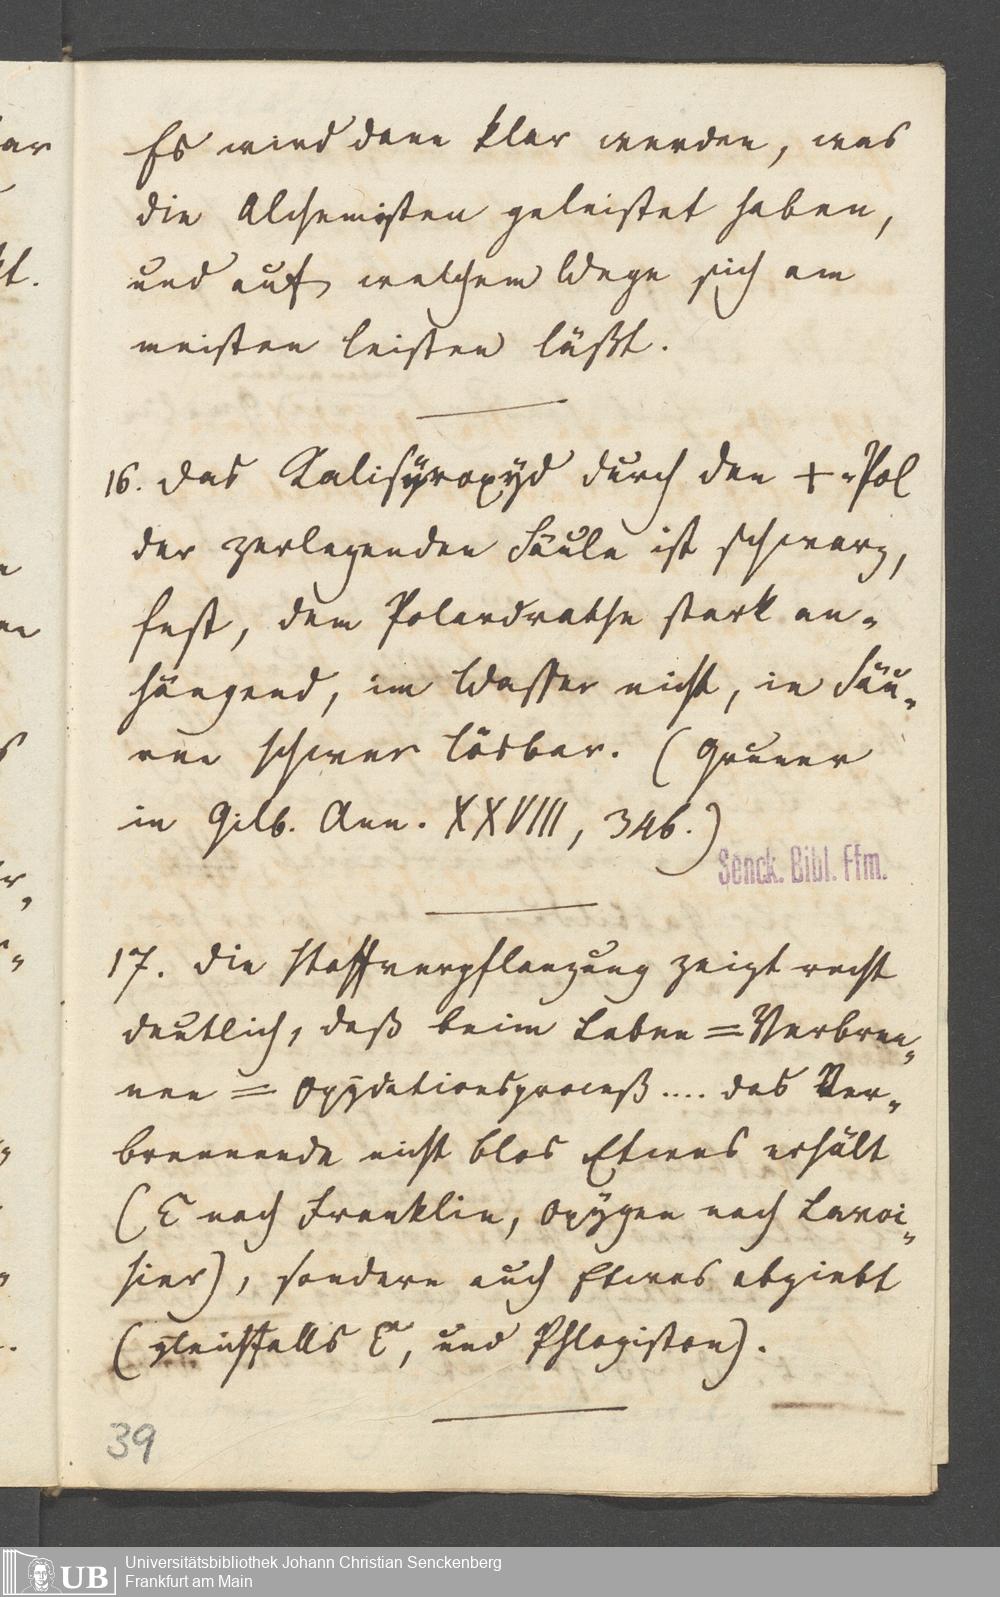 Es wird dann klar werden, was
die Alchemisten geleistet haben,
und auf welchem Wege sich am
meisten leisten läßt.
16. Das Kalihÿroxÿd durch den + Pol
der zerlegenden Säule ist schwarz,
fest, dem Polardrathe stark an-
hängend, im Wasser nicht, in Säu-
ren schwer lösbar. (Gruner
in Gilb. Ann. XXVIII, 346.)
Senck. Bibl. Ffm.
17. Die Stoffverpflanzung zeigt recht
deutlich, daß beim Leben = Verbren-
nen = Oxÿdationsproceß .... das Ver-
brennende nicht blos Etwas erhält
(E nach Franklin, Oxÿgen nach Lavoi-
sier), sondern auch Etwas abgiebt
(gleichfalls E, und Phlogiston).
39
UB
Universitätsbibliothek Johann Christian Senckenberg
Frankfurt am Main